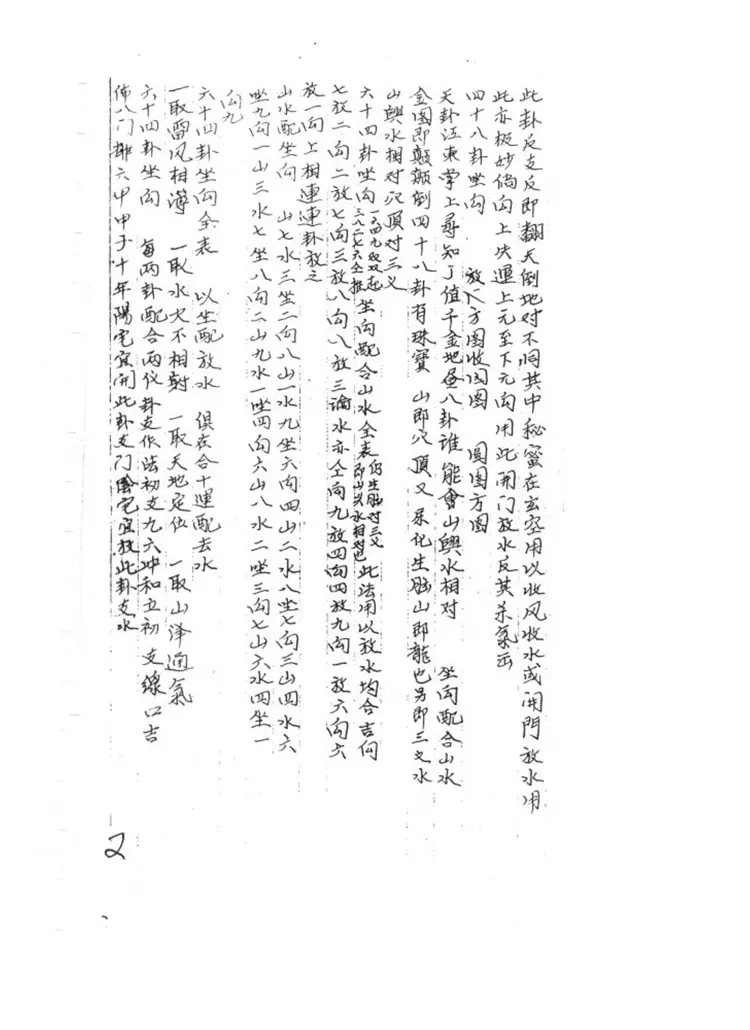 此卦反支反即翻天倒地对不同其中秘密在玄空用以收风收水或開門放水用
此亦极妙倘向上失運上元至下元向用此開门放水反其杀氣而
四十八卦坐向 放尺方图收圆图 圓图方图
天卦江東掌上尋知了值千金地画八卦谁能會山與水相对 坐向配合山水
金图即颠颠倒四十八卦有珠寶 山即穴頂又 化生脑山即龍也另即三叉水
山與水相对穴頂对三义
六十四卦坐向 一六四九双双起 三八二七六仝推 坐向配合山水全表 化生脑对三义 即山与水相对也 此法用以放水均合吉向
七放二向二放七向三放八向八放三論水亦仝向九放四向四放九向一放六向六
放一向上相連連卦放之
山水配坐向 山七水三坐二向八山一水九坐六向四山二水八坐七向三山四水六
坐九向一山三水七坐八向二山九水一坐四向六山八水二坐三向七山六水四坐一
向九
六十四卦坐向全表 以坐配放水 俱在合十運配去水
一取雷风相薄 一取水火不相射 一取天地定位 一取山泽通氣
六十四卦坐向 每两卦配合两仪卦支作法初支九六冲和立初支線口吉
佈八门排六甲甲子十年陽宅宜開此卦支门陰宅宜放此卦支水
2